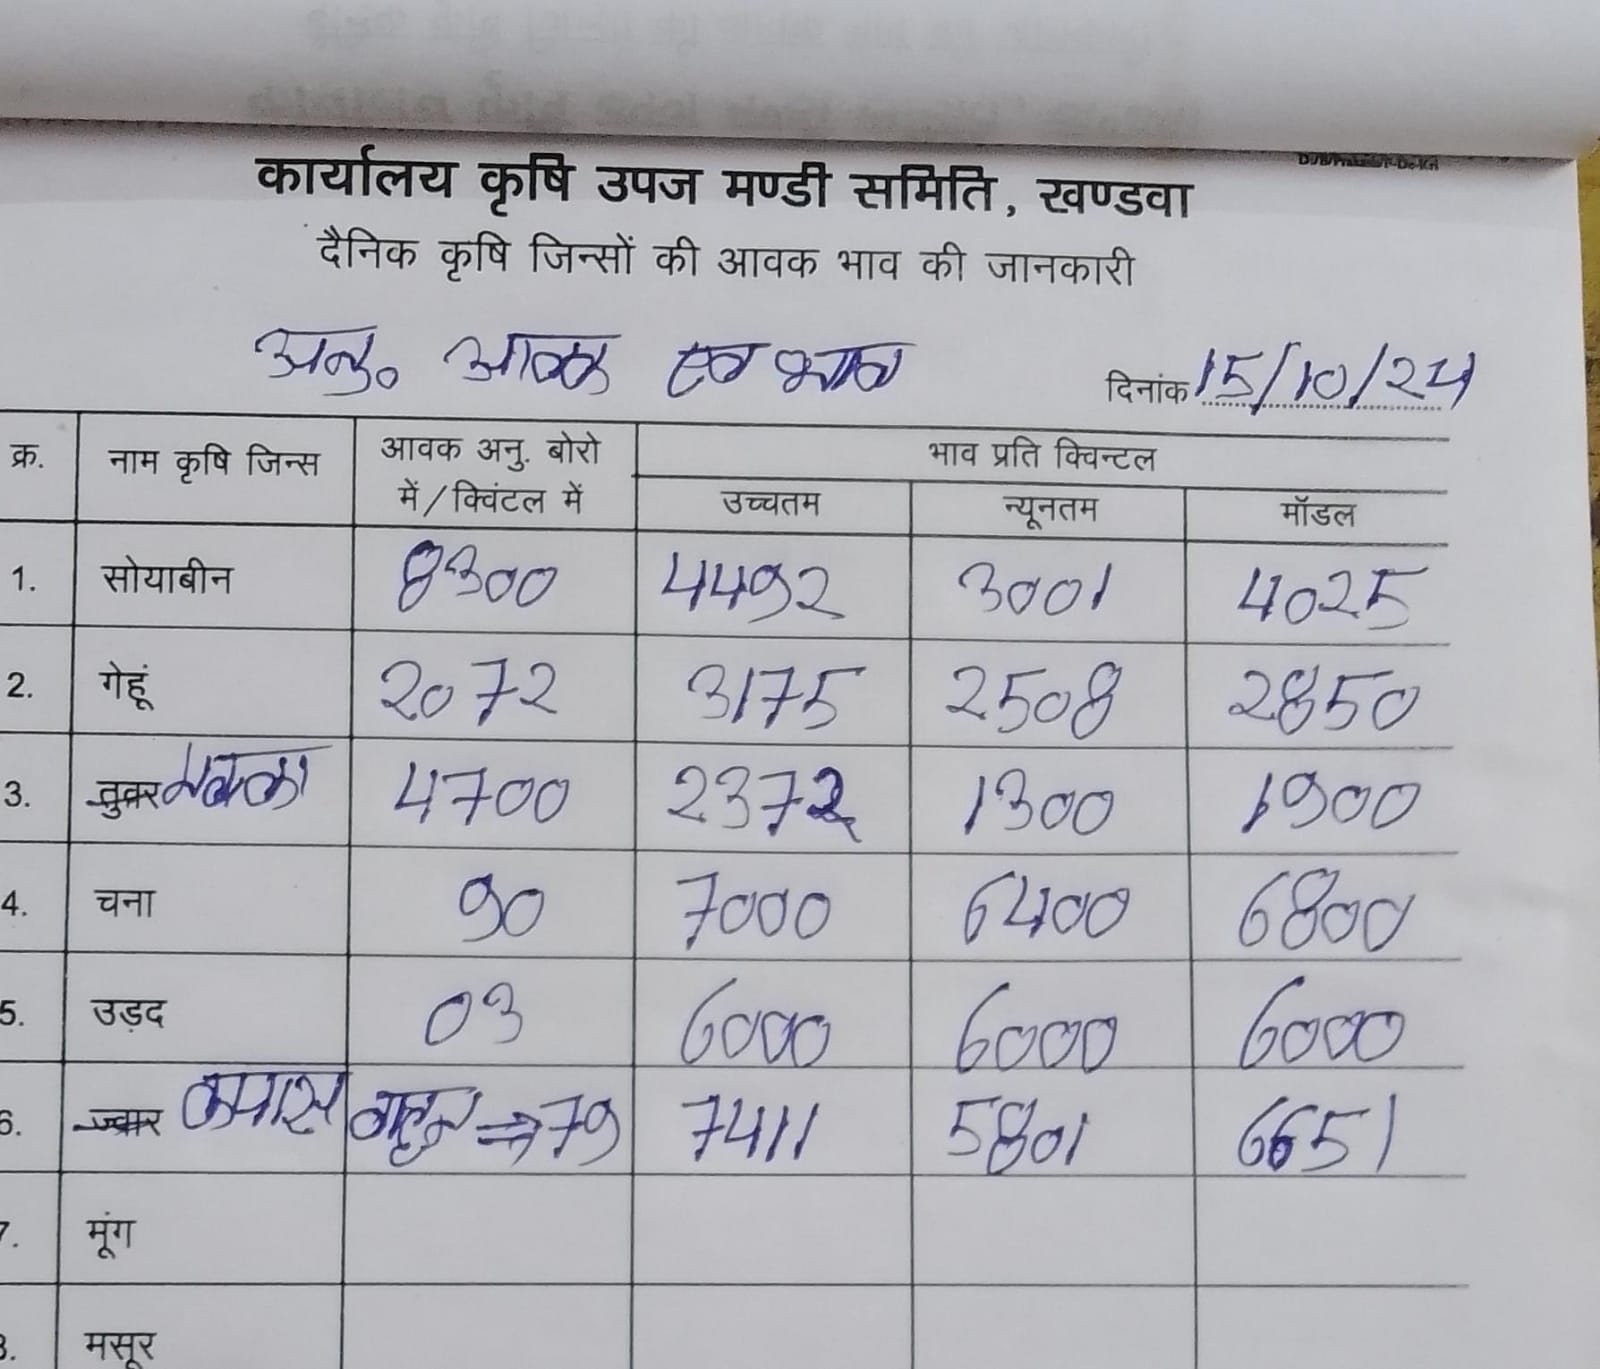 कार्यालय कृषि उपज मण्डी समिति, खण्डवा
दैनिक कृषि जिन्सों की आवक भाव की जानकारी
अनु. आवक एव भाव दिनांक 15/10/24
क्र. नाम कृषि जिन्स आवक अनु. बोरो में/क्विंटल में भाव प्रति क्विन्टल
उच्चतम न्यूनतम मॉडल
1. सोयाबीन 8300 4492 3001 4025
2. गेहूं 2072 3175 2508 2850
3. तुवर मक्का 4700 2372 1300 1900
4. चना 90 7000 6400 6800
5. उड़द 03 6000 6000 6000
6. ज्वार कपास वाहन ⇒ 79 7411 5801 6651
7. मूंग
8. मसूर